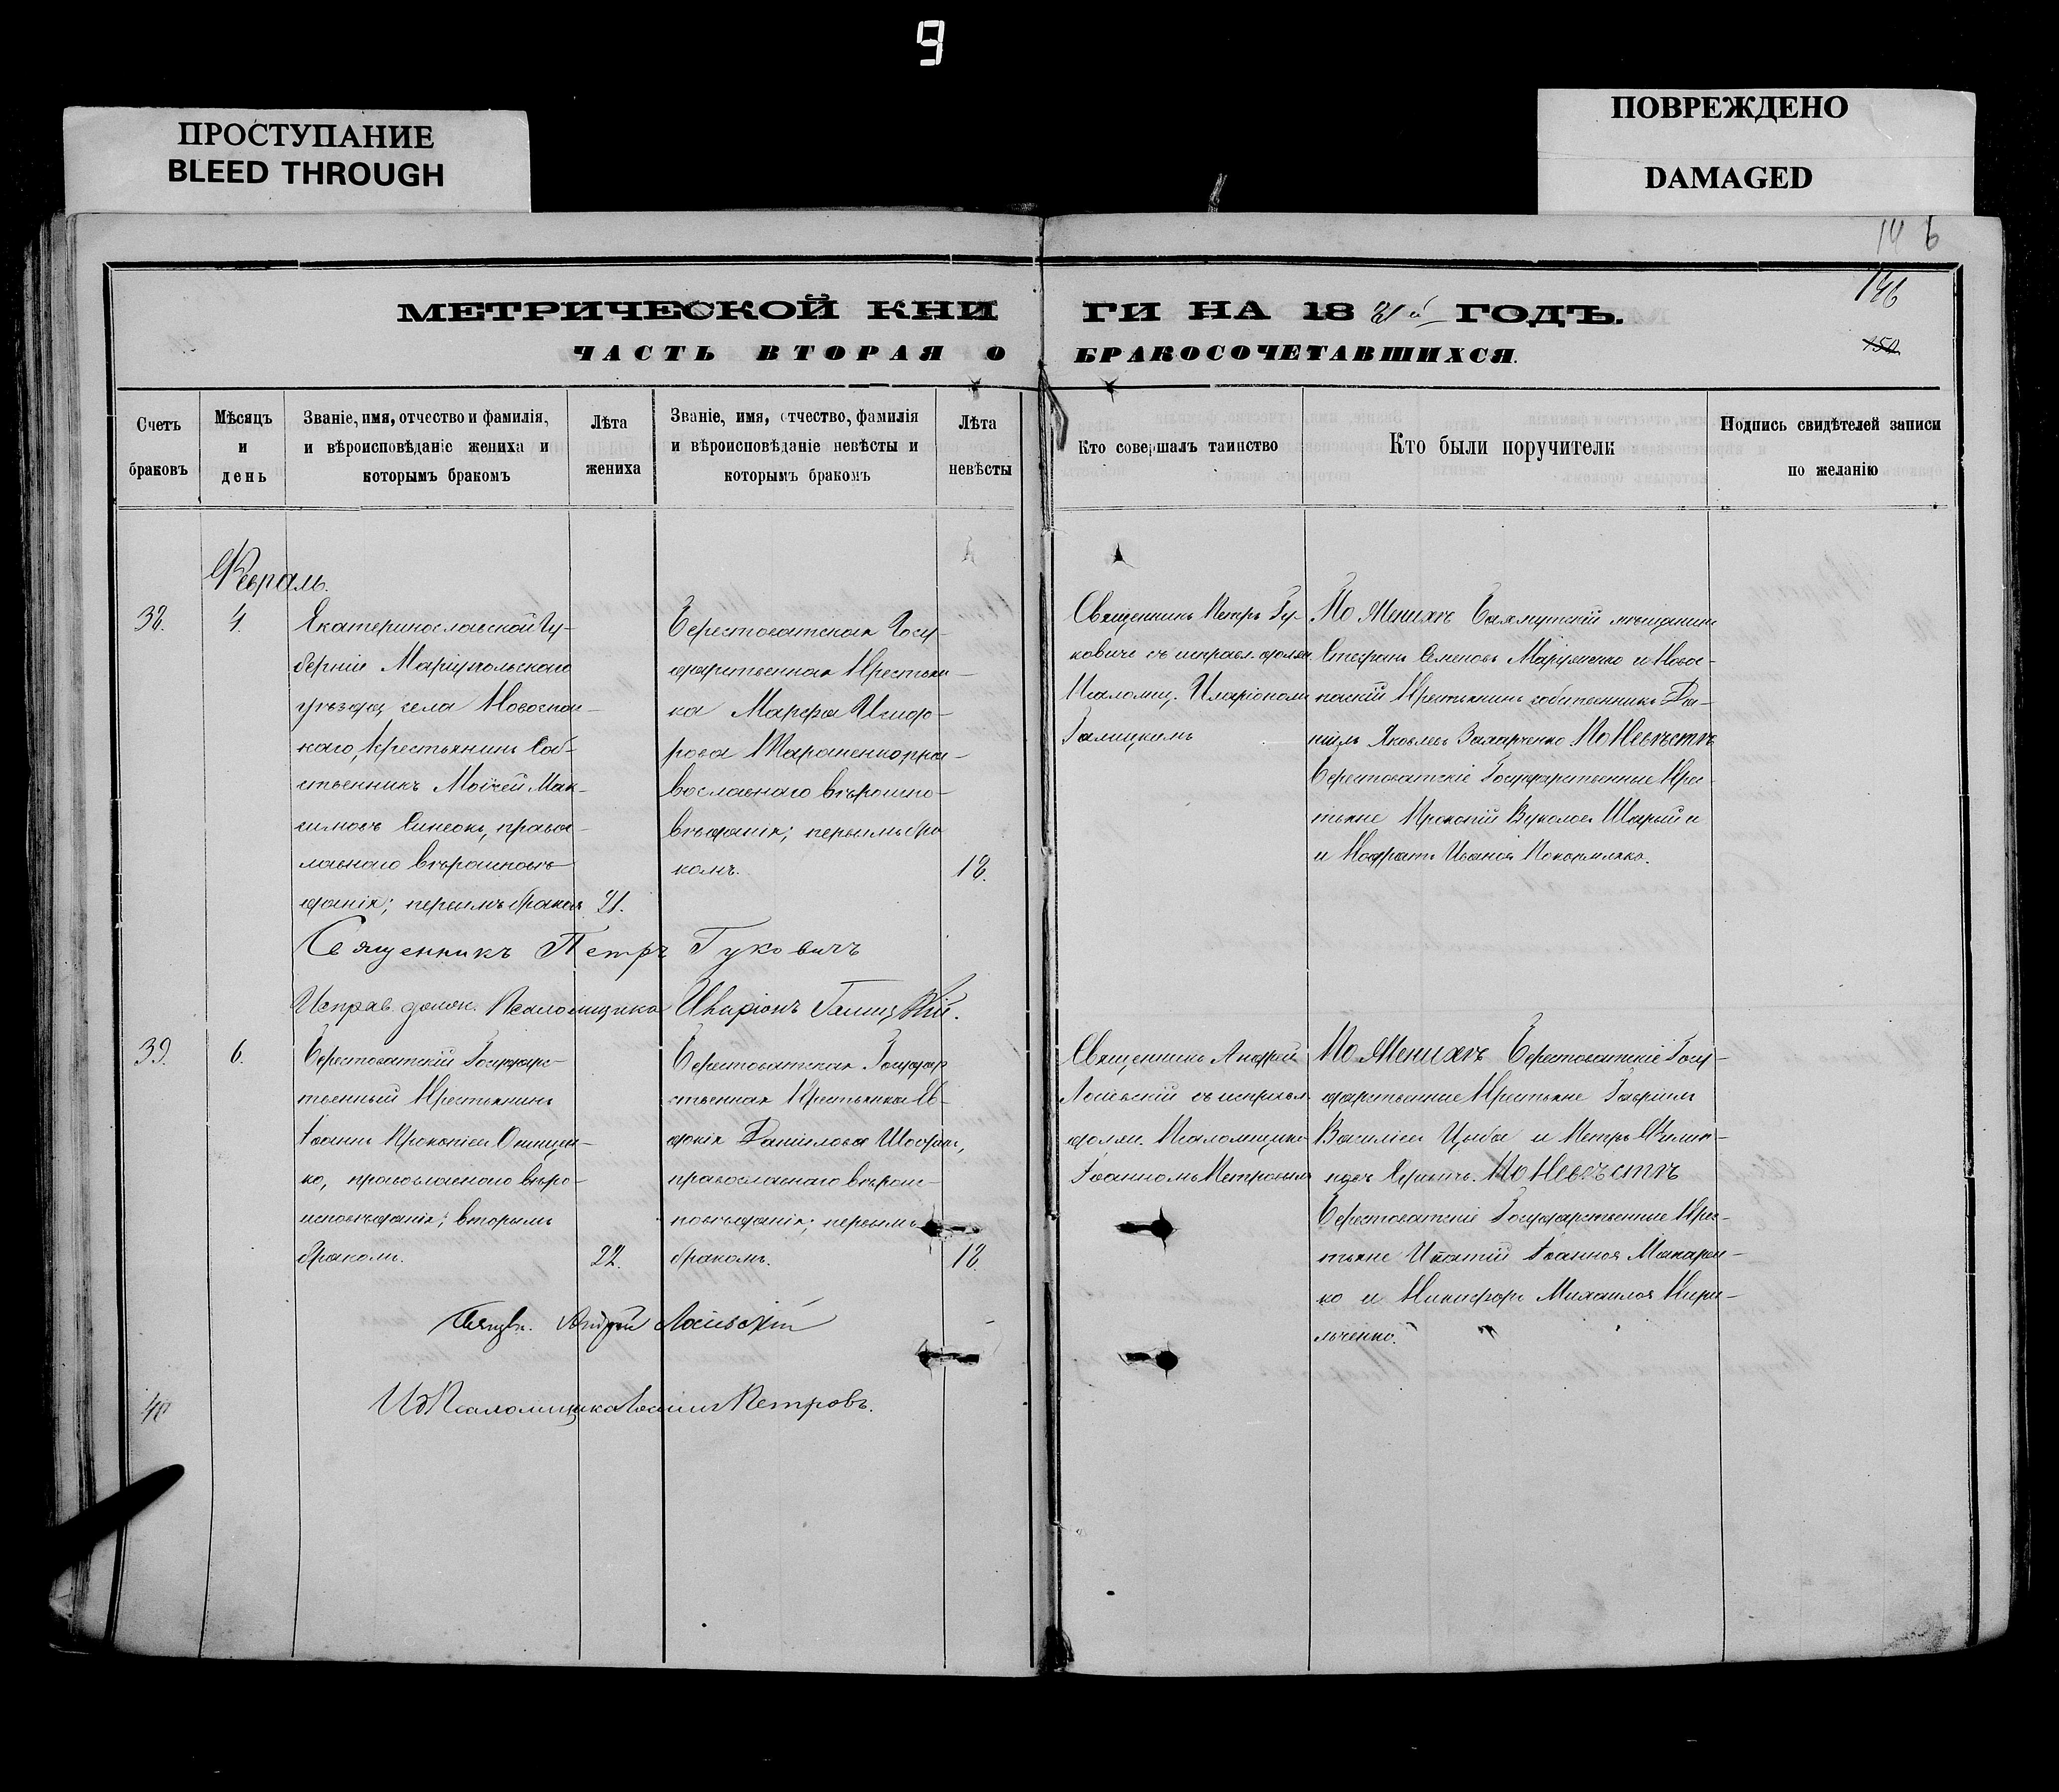 9
ПРОСТУПАНИЕ
BLEED THROUGH
ПОВРЕЖДЕНО
DAMAGED
146
146
МЕТРИЧЕСКОЙ КНИ
ГИ НА 1881й ГОДЪ.
ЧАСТЬ ВТОРАЯ О
БРАКОСОЧЕТАВШИХСЯ.
Счетъ
браковъ
Мѣсяцъ
и
день
Званіе, имя, отчество и фамилія,
и вѣроисповѣданіе жениха и
которымъ бракомъ
Лѣта
жениха
Званіе, имя, отчество, фамилія
и вѣроисповѣданіе невѣсты и
которымъ бракомъ
Лѣта
невѣсты
Кто совершалъ таинство
Кто были поручители
Подпись свидѣтелей записи
по желанію
Февраль.
38.
4.
Екатеринославской Гу-
берніи Маріупольскаго
уѣзда, села Новоспас-
каго, крестьянинъ Соб-
ственникъ Моісей Мак-
симовъ, правос-
лавнаго вѣроисповѣ-
данія; первымъ бракомъ
21.
Берестоватская Госу-
дарственная Крестьян-
ка Марфа
пра-
вославнаго вѣроиспо-
вѣданія; первымъ бра
комъ.
18.
Священникъ Петръ Гу-
ковичъ съ исправл. долж.
Псаломщ. Иларіономъ
Галицкимъ
По Женихѣ Бахмутскій мѣщанинъ
Стефанъ Семеновъ и Новос-
паскій Крестьянинъ собственникъ Да-
ніилъ Яковлевъ Захарченко По Невѣстѣ
Берестоватскіе Государственные Крес-
тьяне Прокопій Вуколовъ Шарый и
и Кодратъ Ивановъ
Священникъ Петръ Гуковичъ
Исправ. долж. Псаломщика Иларіонъ Галицкій.
39.
6.
Берестоватскій Государс-
твенный Крестьянинъ
Іоаннъ Прокопіевъ
ко, православнаго вѣро-
исповѣданія; вторымъ
бракомъ.
22.
Берестоватская Государ
ственная Крестьянка Ев-
докія Даніилова
православнаго вѣроис-
повѣданія; первымъ
бракомъ.
18.
Священникъ Андрей
Лосіевскій съ исправл.
долж. Псаломщика
Іоанномъ Петровымъ
По Женихѣ Берестоватскіе Госу-
дарственные Крестьяне Гавріилъ
Василіевъ Цыба и Петръ
По Невѣстѣ
Берестоватскіе Государственные Крес-
тьяне Игнатій Іоанновъ Макарен-
ко и Никифоръ Михаиловъ Кири-
льченко.
Священ. Андрей Лосіевскій
ИД Псаломщика Іоаннъ Петровъ.
40